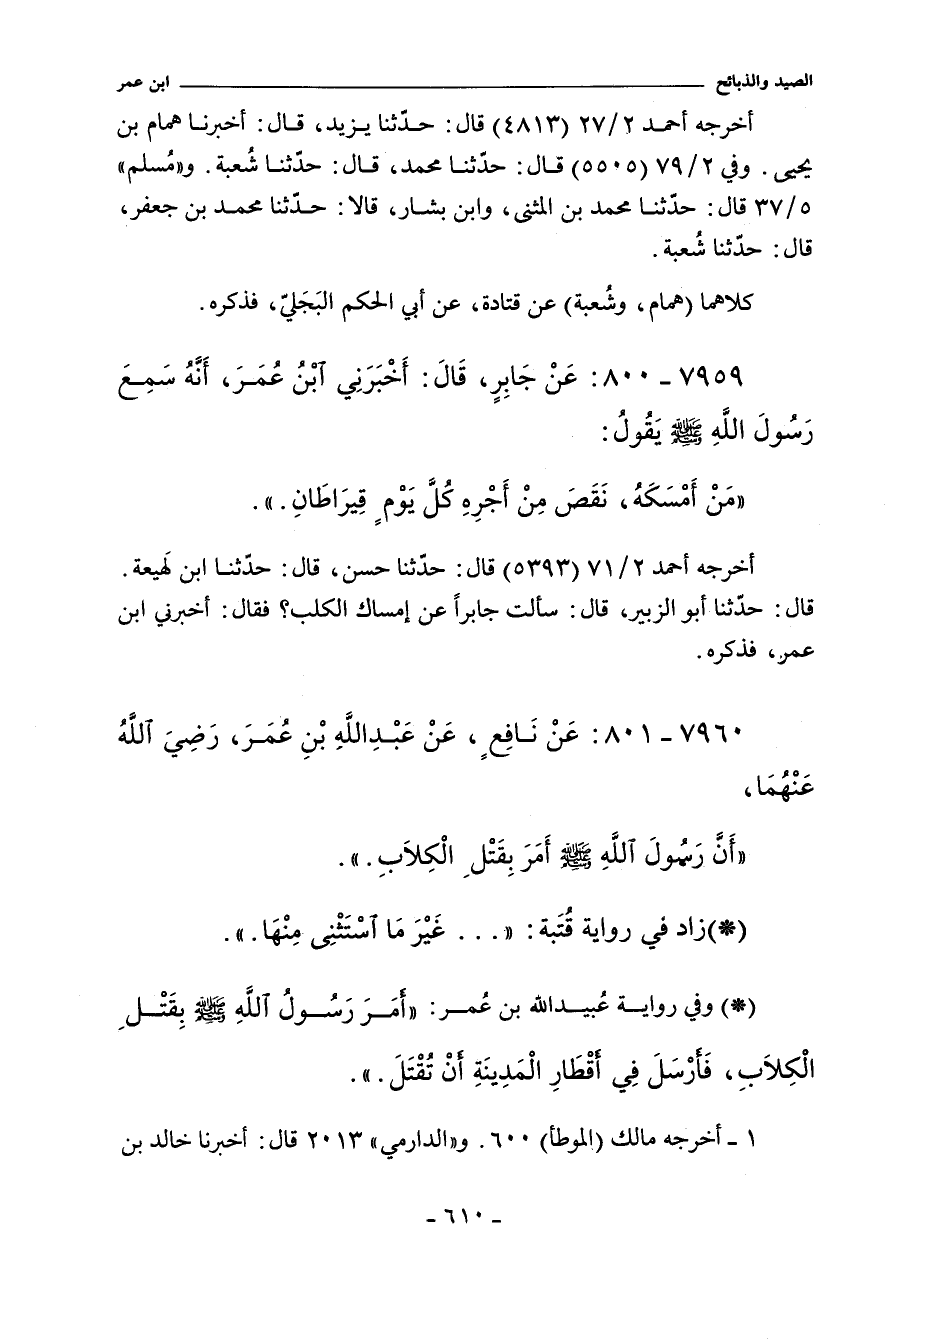 الصيد والذبائح ــــــــــــــــــــ ابن عمر
أخرجه أحمد ٢/ ٢٧ (٤٨١٣) قال: حدّثنا يزيد، قال: أخبرنا همام بن
يحيى. وفي ٢/ ٧٩ (٥٥٠٥) قال: حدّثنا محمد، قال: حدّثنا شُعبة. و«مُسلم»
٥/ ٣٧ قال: حدّثنا محمد بن المثنى، وابن بشار، قالا: حدّثنا محمد بن جعفر،
قال: حدّثنا شُعبة.
كلاهما (همام، وشُعبة) عن قتادة، عن أبي الحكم البَجَليّ، فذكره.
٧٩٥٩ ـ ٨٠٠: عَنْ جَابِرٍ، قَالَ: أَخْبَرَنِي ٱبْنُ عُمَرَ، أَنَّهُ سَمِعَ
رَسُولَ اللَّهِ ﷺ يَقُولُ:
«مَنْ أَمْسَكَهُ، نَقَصَ مِنْ أَجْرِهِ كُلَّ يَوْمٍ قِيرَاطَانِ.».
أخرجه أحمد ٢/ ٧١ (٥٣٩٣) قال: حدّثنا حسن، قال: حدّثنا ابن لهيعة.
قال: حدّثنا أبو الزبير، قال: سألت جابراً عن إمساك الكلب؟ فقال: أخبرني ابن
عمر، فذكره.
٧٩٦٠ ـ ٨٠١: عَنْ نَافِعٍ، عَنْ عَبْدِاللَّهِ بْنِ عُمَرَ، رَضِيَ ٱللَّهُ
عَنْهُمَا،
«أَنَّ رَسُولَ ٱللَّهِ ﷺ أَمَرَ بِقَتْلِ الْكِلاَبِ.».
(*) زاد في رواية قُتَبة: «... غَيْرَ مَا ٱسْتَثْنِى مِنْهَا.».
(*) وفي رواية عُبيدالله بن عُمر: «أَمَرَ رَسُولُ ٱللَّهِ ﷺ بِقَتْلِ
الْكِلاَبِ، فَأَرْسَلَ فِي أَقْطَارِ الْمَدِينَةِ أَنْ تُقْتَلَ.».
١ ـ أخرجه مالك (الموطأ) ٦٠٠. و«الدارمي» ٢٠١٣ قال: أخبرنا خالد بن
ـ ٦١٠ ـ